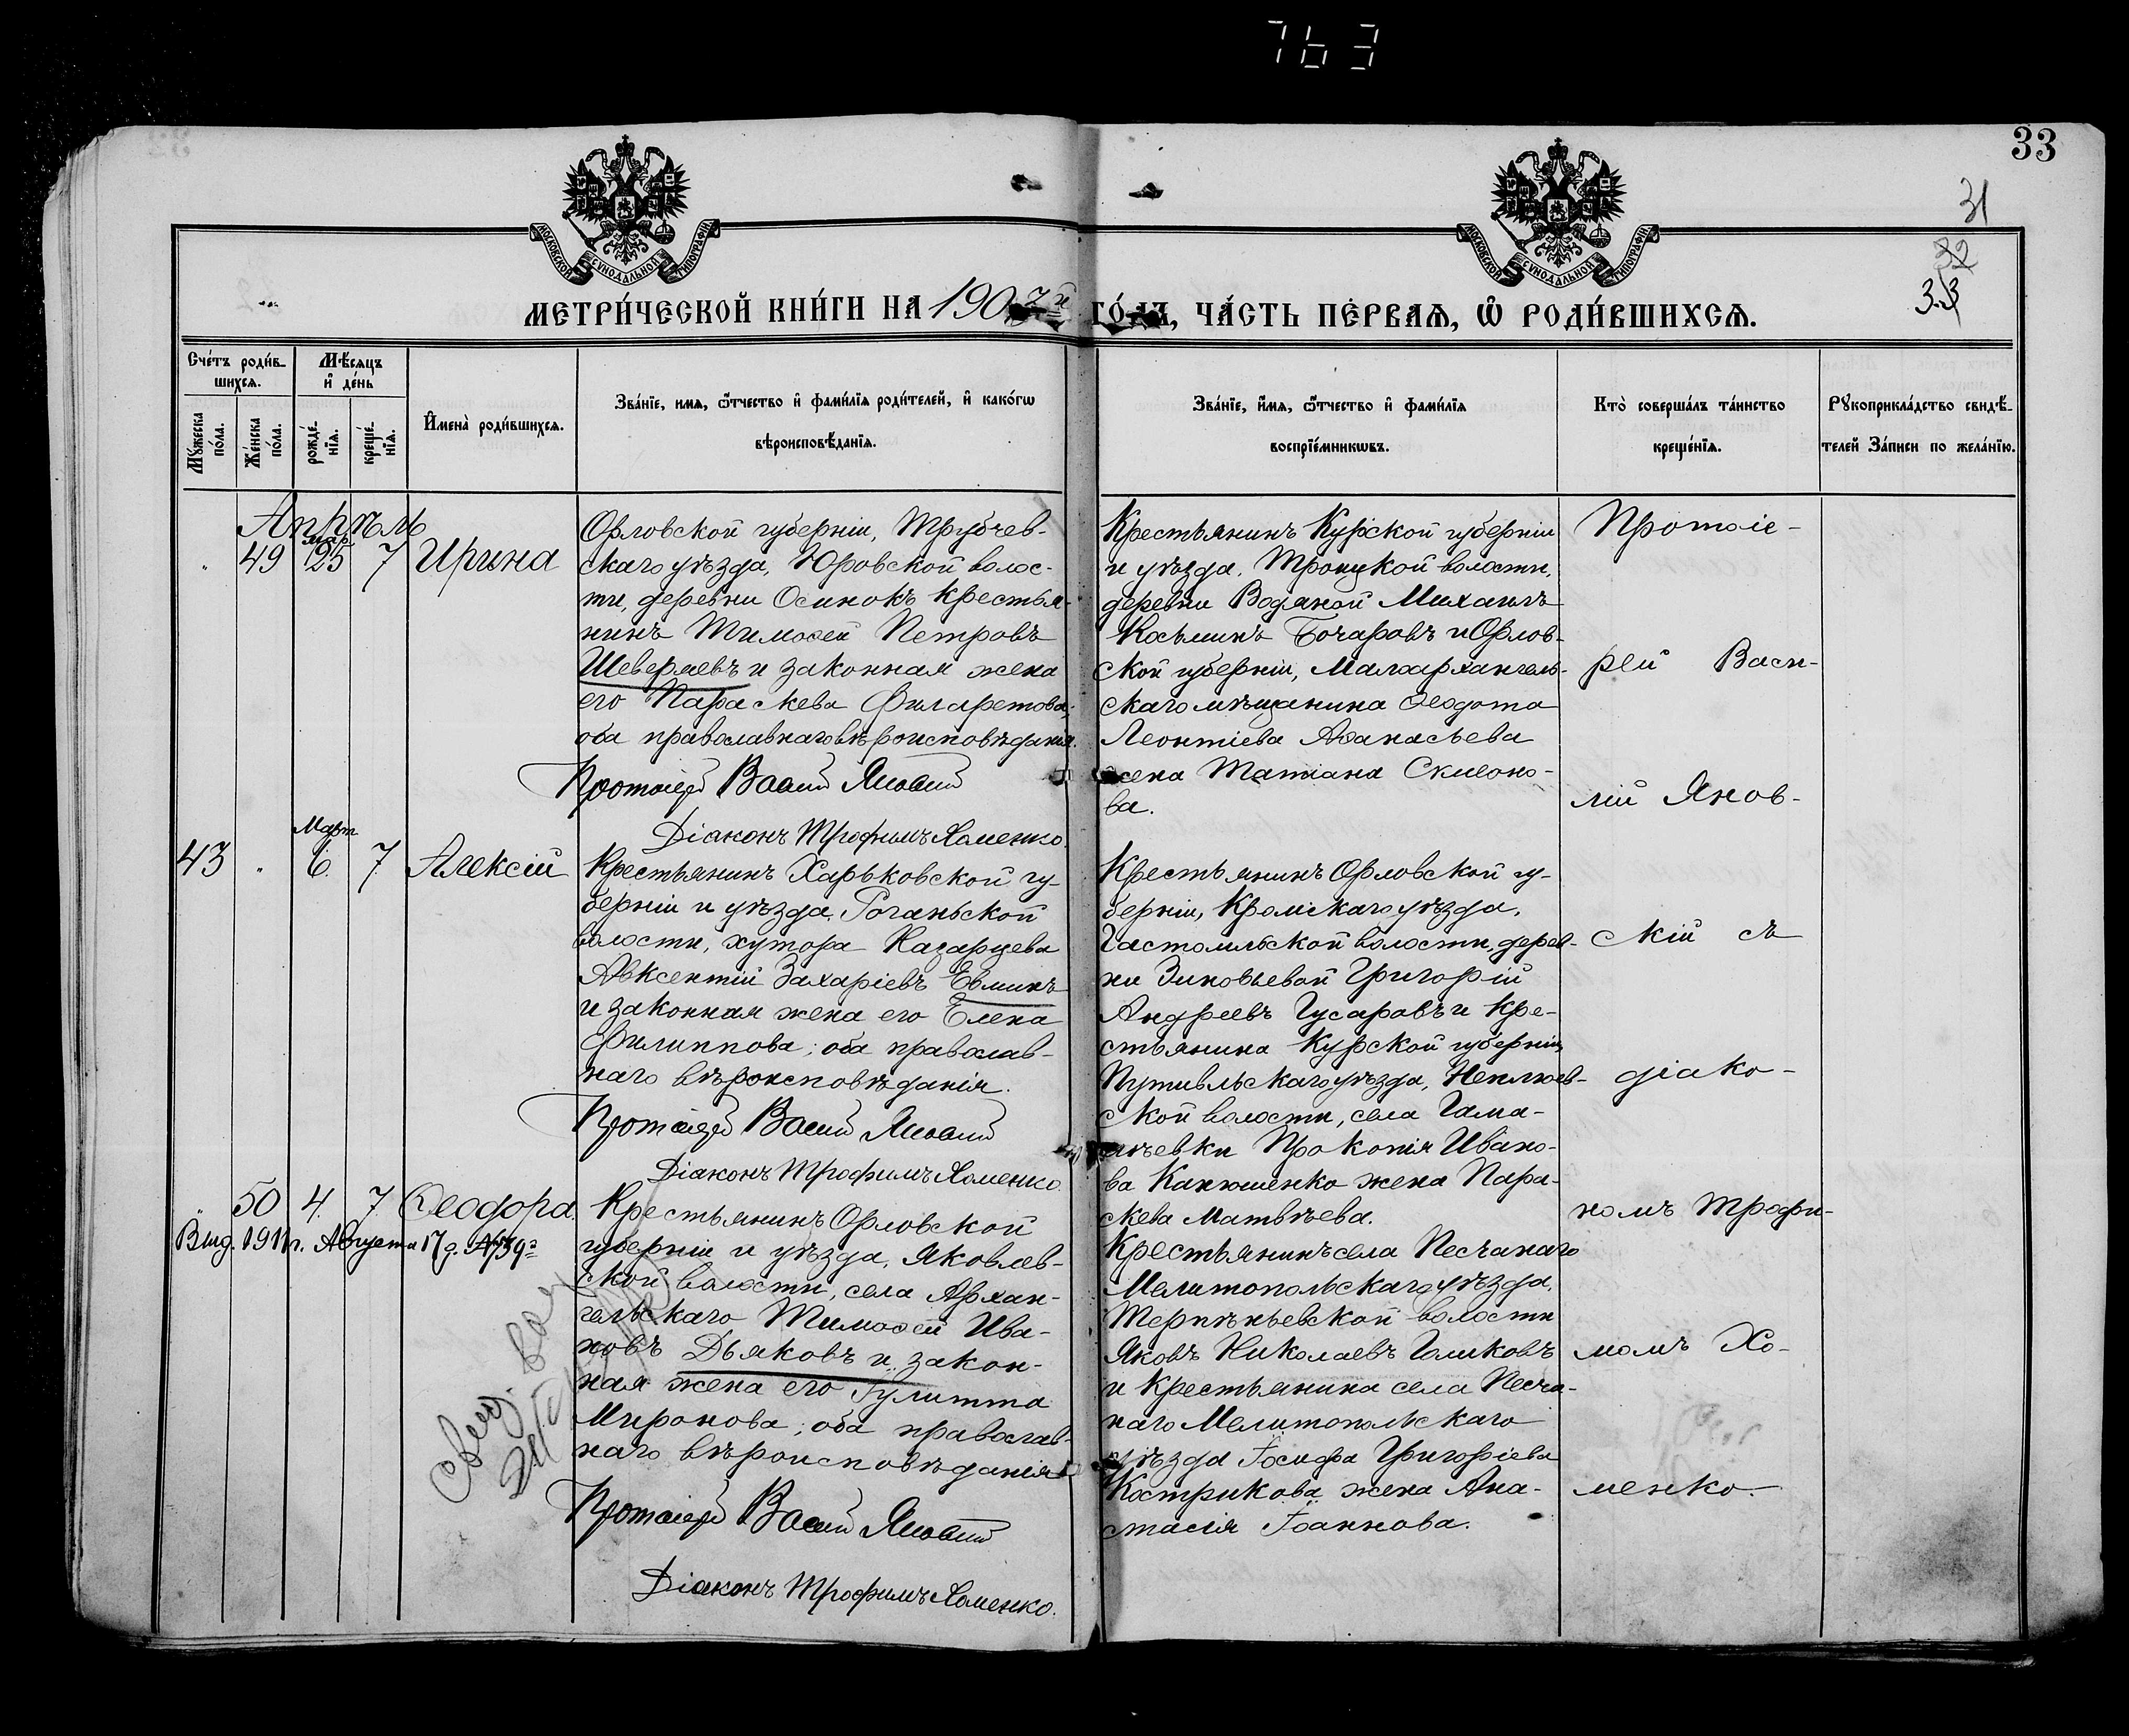 763
33
31
32
33
МОСКОВСКОЙ СѴНОДАЛЬНОЙ ТИПОГРАФІИ
МОСКОВСКОЙ СѴНОДАЛЬНОЙ ТИПОГРАФІИ
МЕТРИ́ЧЕСКОЙ КНИ́ГИ НА 1907й ГО́ДЪ, ЧА́СТЬ ПЕ́РВАѦ, Ѡ҆ РОДИ́ВШИХСѦ.
Сче́тъ роди́в-
шихсѧ.
Мѣ́сѧцъ
и҆ де́нь
Мꙋ́жеска по́ла.
Же́нска по́ла.
рожде́-нїѧ.
креще́-нїѧ.
И҆мена̀ роди́вшихсѧ.
Зва́нїе, имѧ, ѻ҆́тчество и҆ фами́лїѧ роди́телей, и҆ како́гѡ
вѣроисповѣ́данїѧ.
Зва́нїе, и҆́мѧ, ѻ҆́тчество и҆ фами́лїѧ
воспрїе́мникѡвъ.
Кто̀ соверша́лъ та́инство
креще́нїѧ.
Рꙋкоприкла́дство свидѣ́-
телей За́писи по жела́нїю.
Апрѣль
мар.
49 25 7 Ирина
Орловской губерніи, Трубчев-
скаго уѣзда, Юровской волос-
ти, деревни Осинокъ крестья-
нинъ Тимоѳей Петровъ
Шеверяевъ и законная жена
его Параскева Филаретова;
оба православнаго вѣроисповѣданія.
Протоіерей Василій Яновскій
Діаконъ Трофимъ Хоменко.
Крестьянинъ Курской губерніи
и уѣзда, Троицкой волости,
деревни Водяной Михаилъ
Косьминъ Бочаровъ и Орлов-
ской губерніи, Малоархангель-
скаго мѣщанина Ѳеодота
Леонтіева Аѳанасьева
жена Татіана Симеоно-
ва.
Март
43 " 6 7 Алексій
Крестьянинъ Харьковской гу-
берніи и уѣзда, Роганьской
волости, хутора Назарцева
Авксентій Захаріевъ Евминъ
и законная жена его Елена
Филиппова; оба православ-
наго вѣроисповѣданія.
Протоіерей Василій Яновскій
Діаконъ Трофимъ Хоменко.
Крестьянинъ Орловской гу-
берніи, Кромскаго уѣзда,
Гастомльской волости, дерев-
ни Зиновьевой Григорій
Андреевъ Гусаровъ и кре-
стьянина Курской губерніи,
Путивльскаго уѣзда, Неплюев-
ской волости, села Гама-
лѣевки Прокопія Ивано-
ва Канюшенко жена Пара-
скева Матвѣева.
" 50 4. 7 Ѳеодора.
Выд. 1911 г. Августа 17 д. №739-
Крестьянинъ Орловской
губерніи и уѣзда, Яковлев-
ской волости, села Архан-
гельскаго Тимоѳей Ива-
новъ Дьяковъ и закон-
ная жена его Іулитта
Миронова; оба православ-
наго вѣроисповѣданія
Протоіерей Василій Яновскій
Діаконъ Трофимъ Хоменко.
Крестьянинъ села Песчанаго
Мелитопольскаго уѣзда,
Терпѣньевской волости
Яковъ Николаевъ Голиковъ
и крестьянина села Песча-
наго Мелитопольскаго
уѣзда Іосифа Григоріева
Кострикова жена Ана-
стасія Іоаннова.
Протоіе-
рей Васи-
лій Янов-
скій съ
діако-
номъ Трофи-
момъ Хо-
менко.